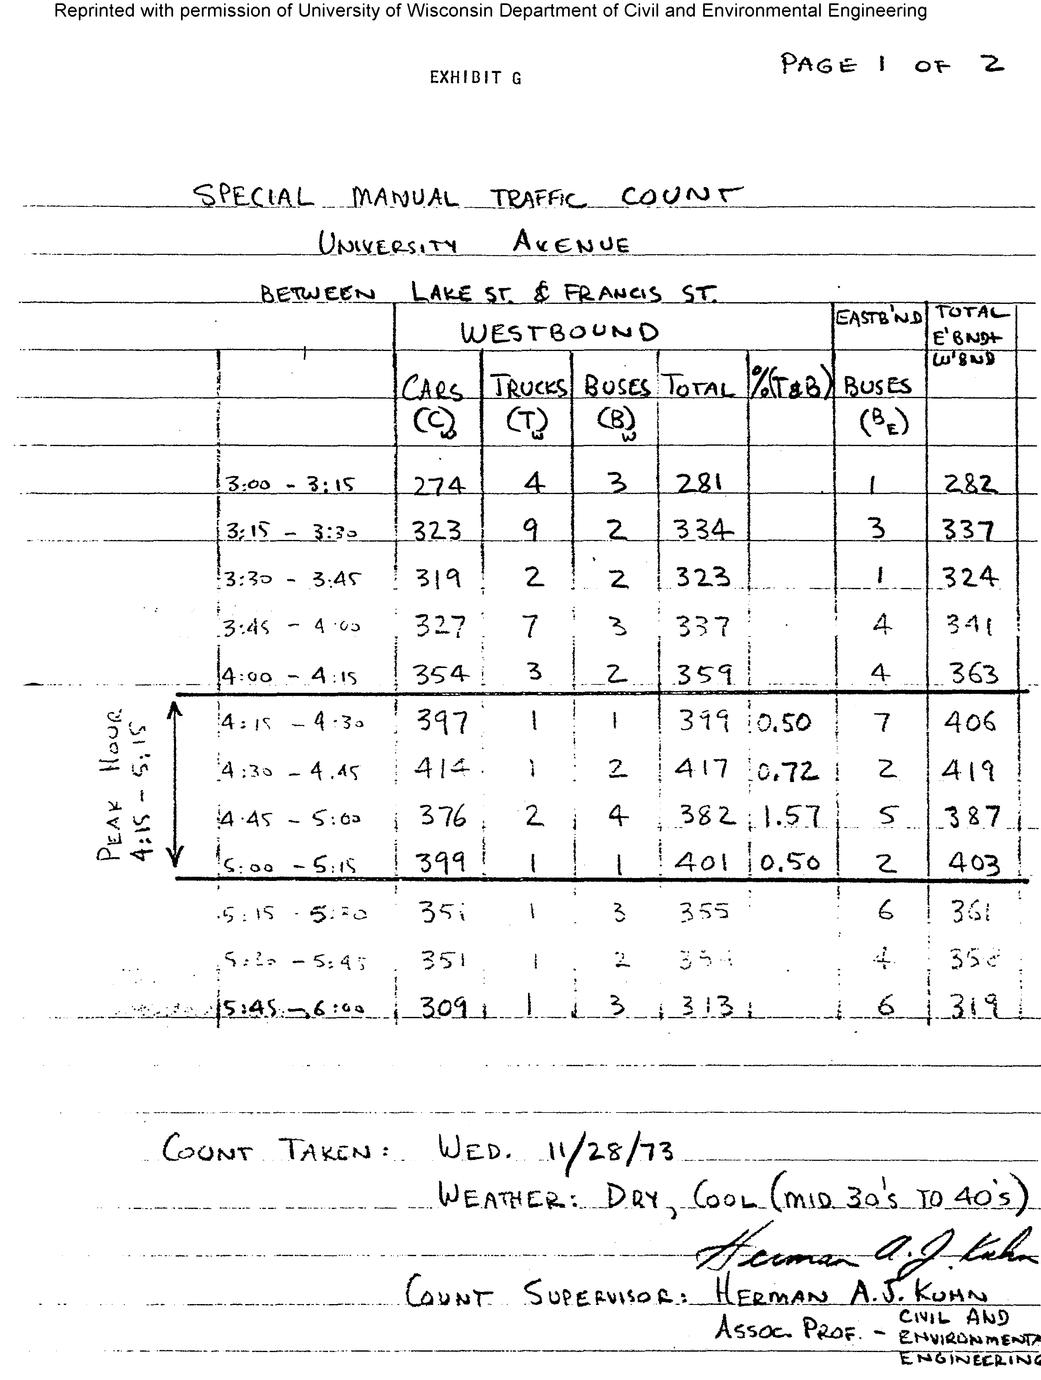 Reprinted with permission of University of Wisconsin Department of Civil and Environmental Engineering
PAGE 1 OF 2
EXHIBIT G
SPECIAL MANUAL TRAFFIC COUNT
UNIVERSITY AVENUE
BETWEEN LAKE ST. & FRANCIS ST.
WESTBOUND EASTB'ND TOTAL E'BND+ W'BND
CARS (C)w TRUCKS (T)w BUSES (B)w TOTAL %(T&B) BUSES (BE)
3:00 - 3:15 274 4 3 281 1 282
3:15 - 3:30 323 9 2 334 3 337
3:30 - 3:45 319 2 2 323 1 324
3:45 - 4:00 327 7 3 337 4 341
4:00 - 4:15 354 3 2 359 4 363
PEAK HOUR
4:15 - 5:15
4:15 - 4:30 397 1 1 399 0.50 7 406
4:30 - 4.45 414 1 2 417 0.72 2 419
4:45 - 5:00 376 2 4 382 1.57 5 387
5:00 - 5:15 399 1 1 401 0.50 2 403
5:15 - 5:30 351 1 3 355 6 361
5:30 - 5:45 351 1 2 354 4 358
5:45 - 6:00 309 1 3 313 6 319
COUNT TAKEN: WED. 11/28/73
WEATHER: DRY, COOL (MID 30's TO 40's)
Herman A. J. Kuhn
COUNT SUPERVISOR: HERMAN A.J. KUHN
ASSOC. PROF. - CIVIL AND
ENVIRONMENTA
ENGINEERING